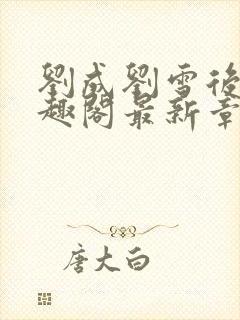 劉成劉雪後
趣閣最新章
唐大白